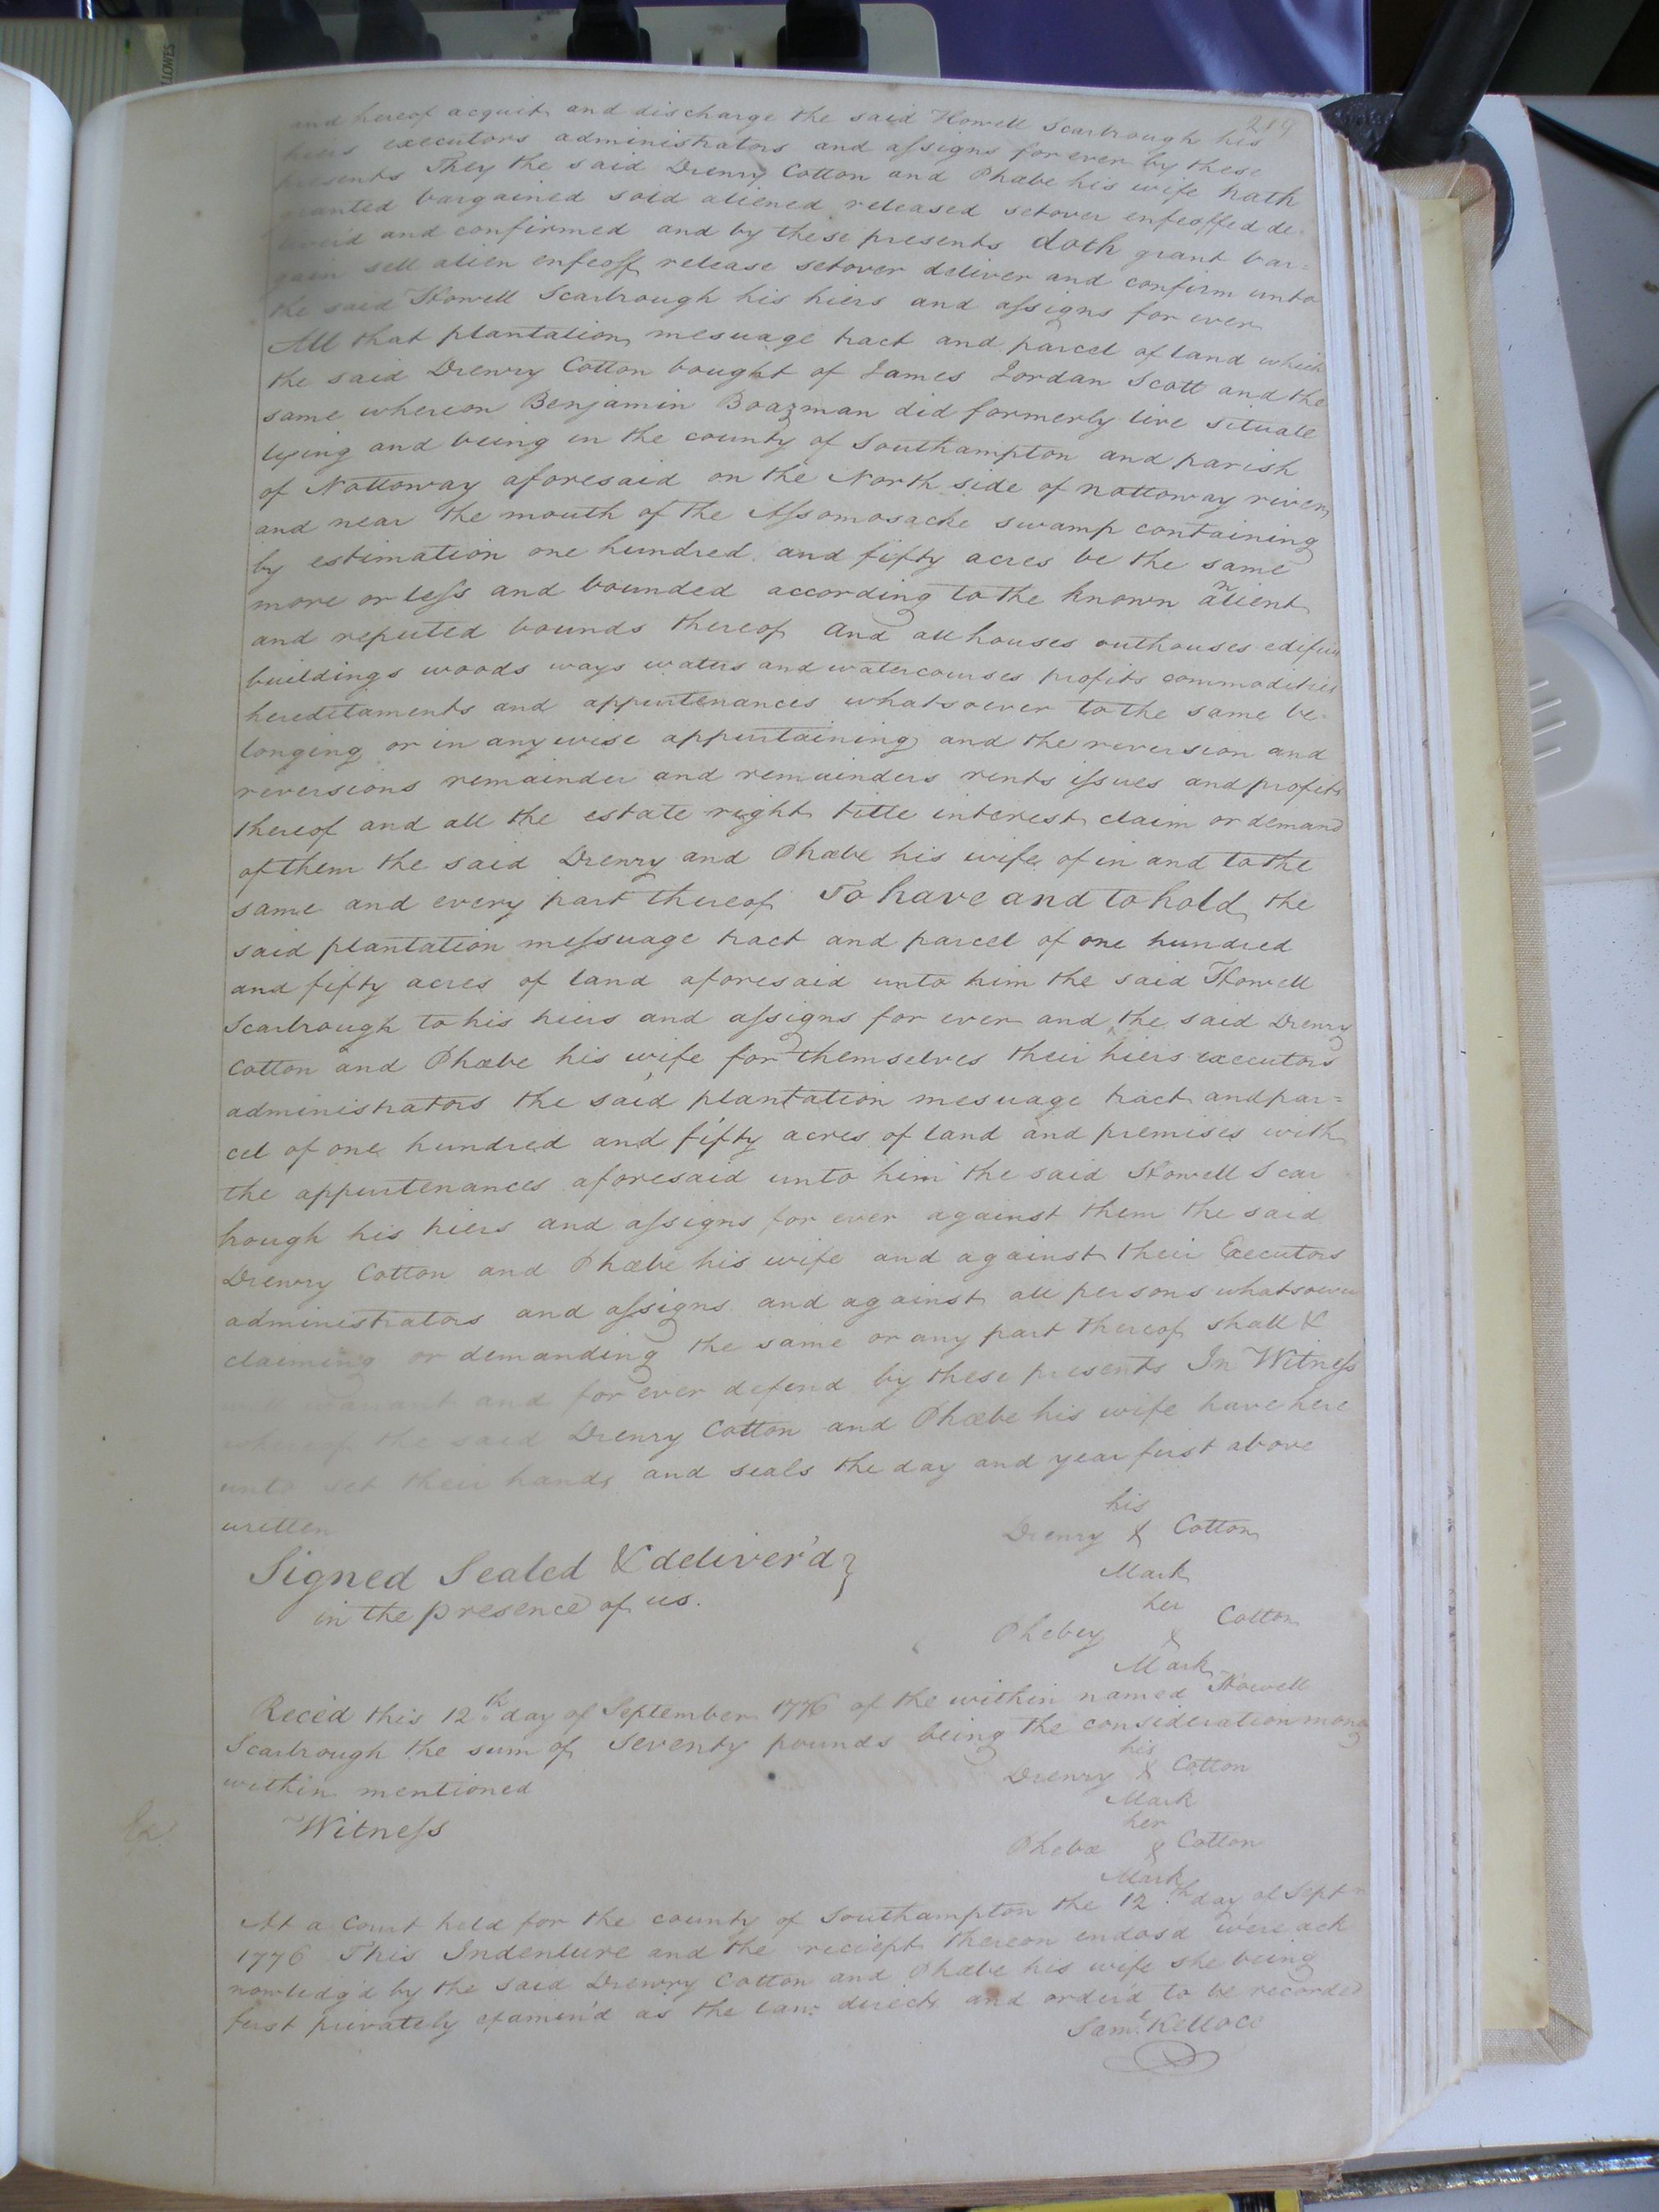 LOWES
219
and hereof acquit and discharge the said Howell Scarbrough his
hiers executors administrators and assigns for ever by these
presents They the said Drewry Cotton and Phœbe his wife hath
granted bargained sold aliened released setover enfeoffed de-
liver'd and confirmed and by these presents doth grant bar=
gain sell alien enfeoff release setover deliver and confirm unto
the said Howell Scarbrough his hiers and assigns for ever
All that plantation mesuage tract and parcel of land which
the said Drewry Cotton bought of James Jordan Scott and the
same whereon Benjamin Boazman did formerly live situate
lying and being in the county of Southampton and parish
of Nottoway aforesaid on the North side of nottoway river
and near the mouth of the Assomosacke swamp containing
by estimation one hundred and fifty acres be the same
more or less and bounded according to the known antient
and reputed bounds thereof and all houses outhouses edifices
buildings woods ways waters and watercourses profits commodities
hereditaments and appurtenances whatsoever to the same be-
longing or in any wise appurtaining and the reversion and
reversions remainder and remainders rents issues and profits
thereof and all the estate right title interest claim or demand
of them the said Drewry and Phœbe his wife of in and to the
same and every part thereof To have and to hold the
said plantation messuage tract and parcel of one hundred
and fifty acres of land aforesaid unto him the said Howell
Scarbrough to his hiers and assigns for ever and the said Drewry
Cotton and Phœbe his wife for themselves their hiers executors
administrators the said plantation mesuage tract and par=
cel of one hundred and fifty acres of land and premises with
the appurtenances aforesaid unto him the said Howell Scar
brough his hiers and assigns for ever against them the said
Drewry Cotton and Phœbe his wife and against their Executors
administrators and assigns and against all persons whatsoever
claiming or demanding the same or any part thereof shall &
will warrant and for ever defend by these presents In Witness
whereof the said Drewry Cotton and Phœbe his wife have here
unto set their hands and seals the day and year first above
written
his
Drewry X Cotton
Mark
Signed Sealed & deliver'd
in the presence of us.
her
Phebey X Cotton
Mark
Reced this 12th day of September 1776 of the within named Howell
Scarbrough the sum of Seventy pounds being the consideration money
within mentioned
his
Drewry X Cotton
Mark
Witness
her
Phebœ X Cotton
Mark
At a Court held for the county of Southampton the 12th day of Septr
1776 This Indenture and the reciept thereon endosd were ack
nowledg'd by the said Drewry Cotton and Phœbe his wife she being
first privately examin'd as the law directs and orderd to be recorded
Saml. Kello CC
Ex.